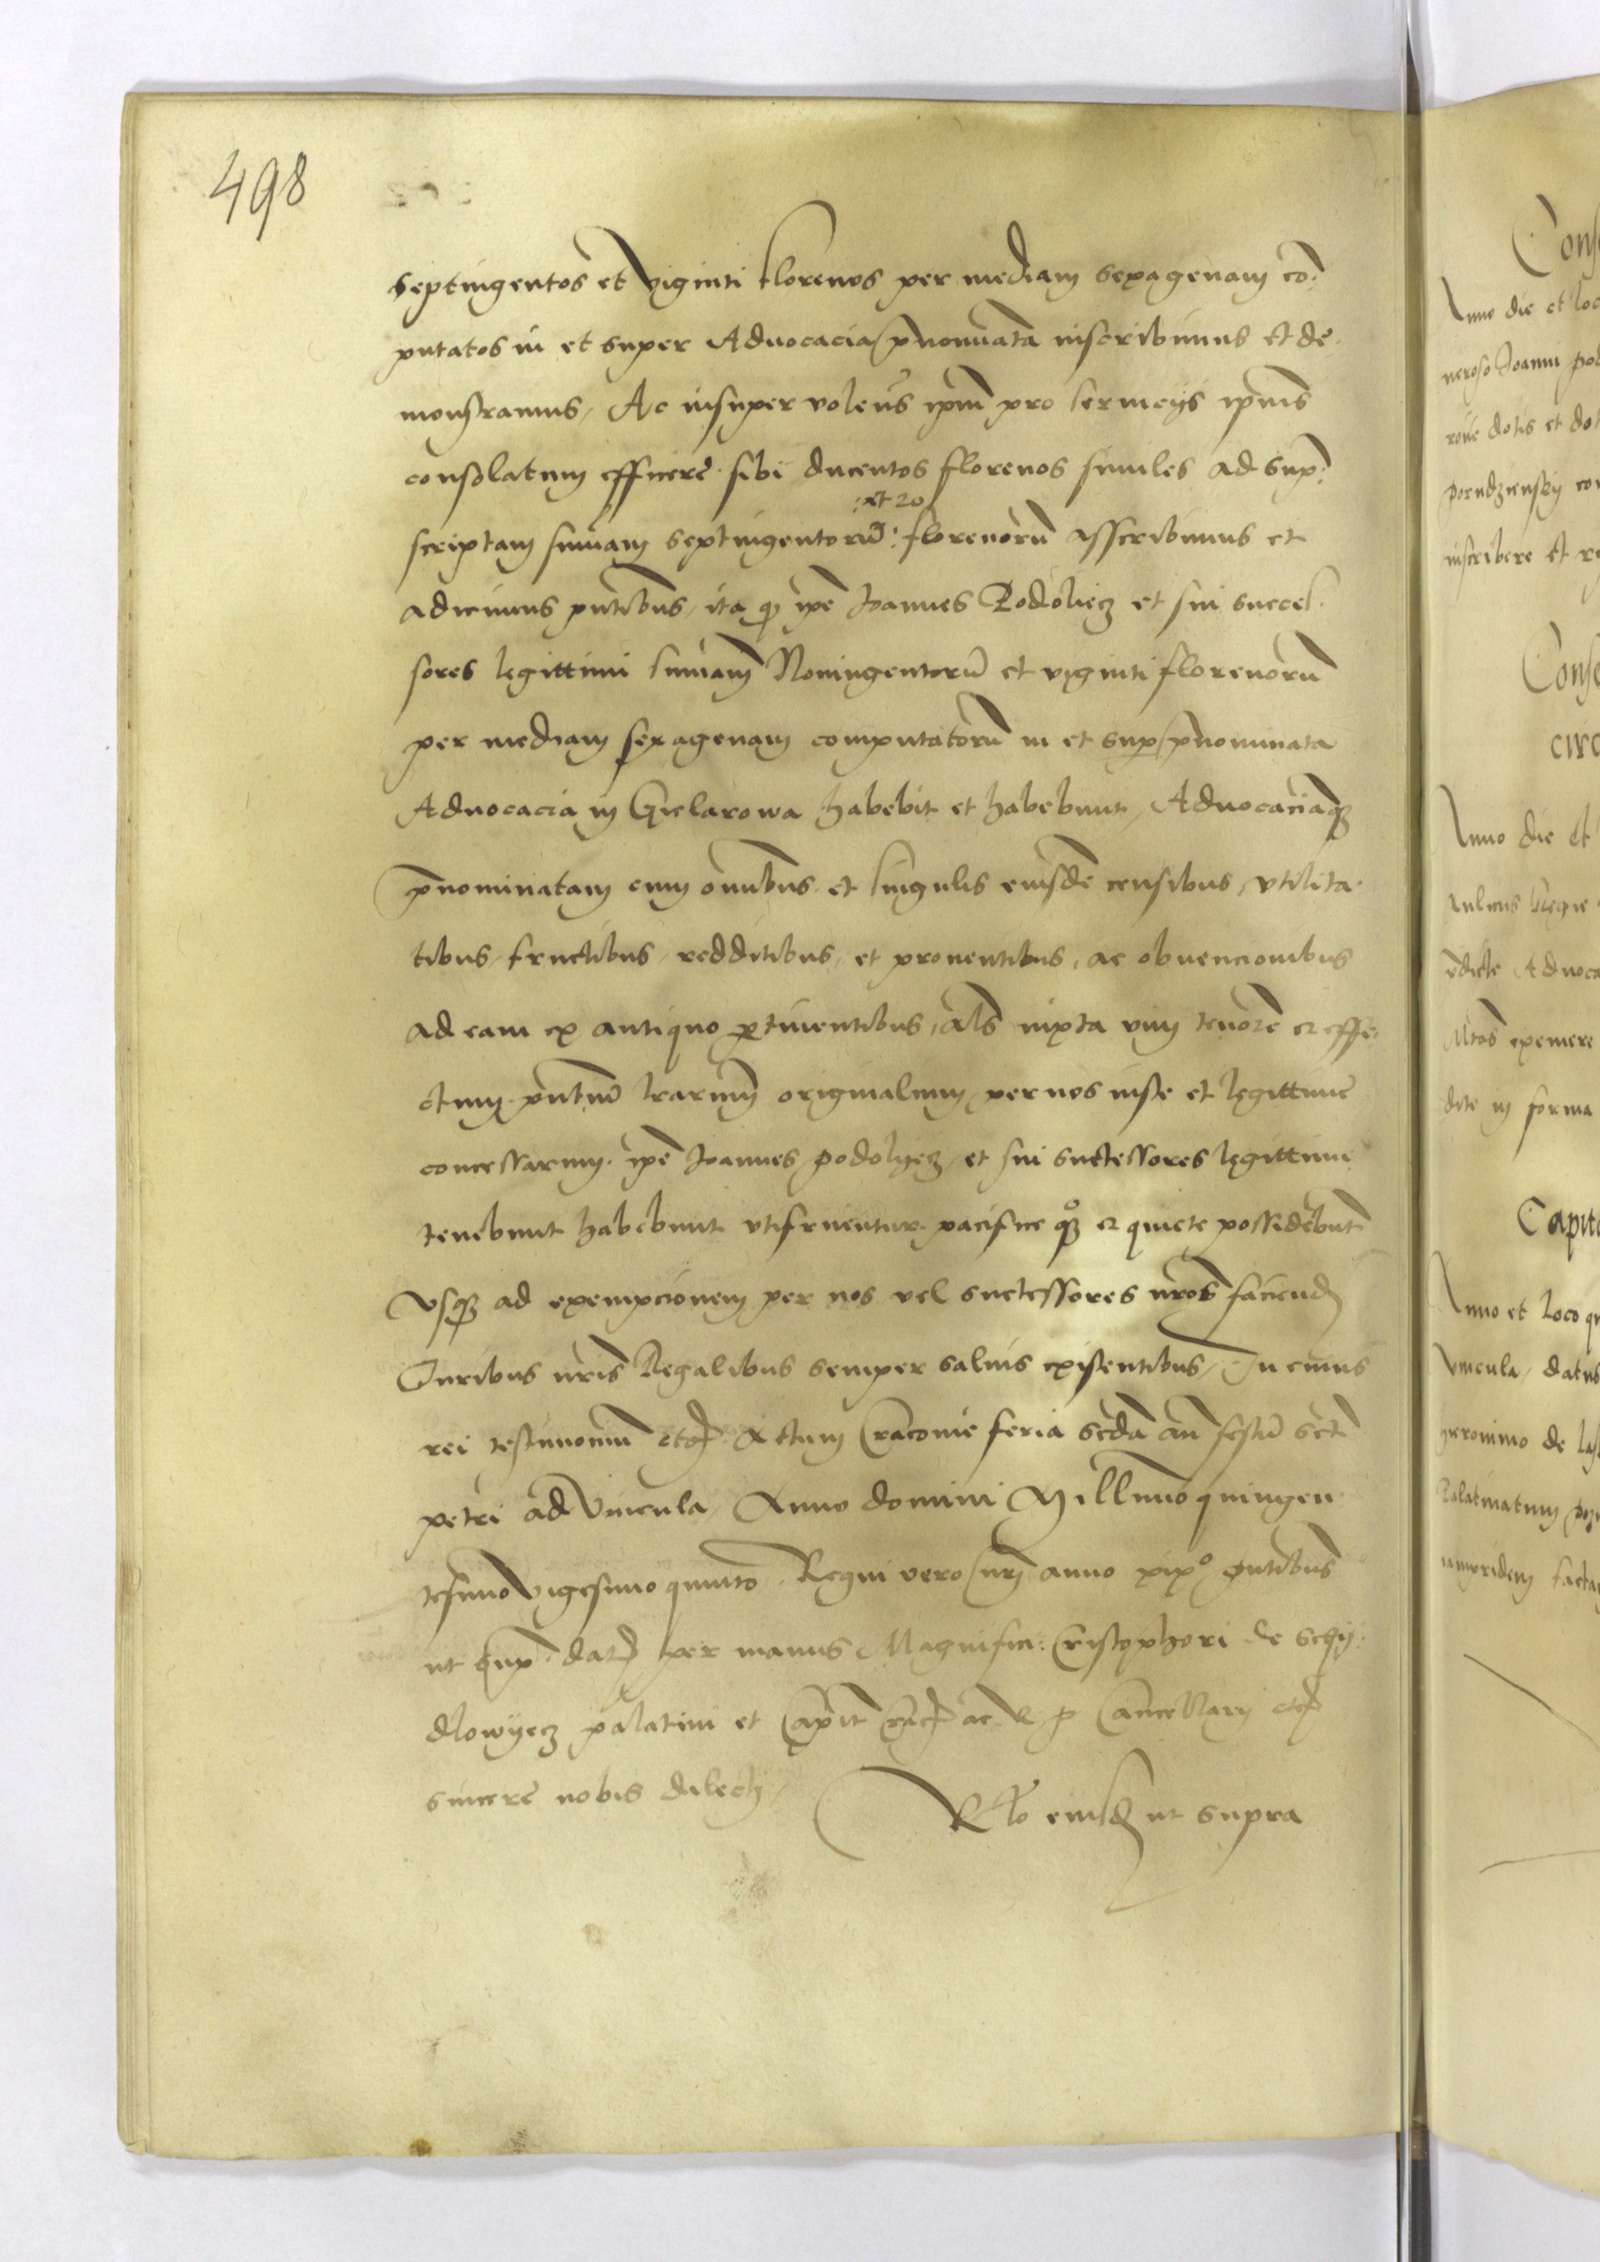 498
septingentos et viginti florenos per mediam sexagenam co:
putatos in et super Advocacia p̄nominata inscribimus et de
monstramus, Ac insuper volen̄s ip̄m pro serviciis ip̄ius
consolatum efficere sibi ducentos florenos similes ad sup:
et 20
scriptam sum̄am septingentorū florenorū asscribimus et
adicimus p̄ntibus, ita q̄ ip̄e Joannes Podoliecz et sui succes
sores legittimi sum̄am Noningentorū et viginti florenorū
per mediam sexagenam computatorū in et sup p̄nominata
Advocacia in Gielarowa habebit et habebunt, Advocaciāq̄
p̄nominatam cum om̄ibus et singulis eiusdē censibus, utilita
tibus, fructibus, redditibus, et proventibus, ac obvencionibus
ad eam ex antiquo ꝑtinentibus, al̄s iuxta vim tenorē et effe
ctum p̄ntiū l̄rarum originalium per nos iuste et legittime
concessarum, ip̄e Joannes podolyecz, et sui successores legittimi
tenebunt habebunt utifruentur pacifice q̄ et quiete possidebunt
usq̄ ad exempcionem per nos vel successores n̄ros faciend
Juribus n̄ris Regalibus semper salvis existentibus, In cuius
rei testimoniū etc Actum Cracovie feria sēda an̄ festū scti
petri ad Vincula Anno domini Millīmo quingen
tesimo vigesimo quinto, Regni vero n̄ri anno xix° p̄ntibus
ut sup. dat per manus Magnifici Cristophori de Schy
dlowyecz palatini et Capit Crac ac R. P. Cancellarii etc
sincere nobis dilecti,
Rl̄o eiusd ut supra
Anno die et loc
inscribere et re
Anno die et
Capit
dite in forma
Anno et loco q
Vincula, datus